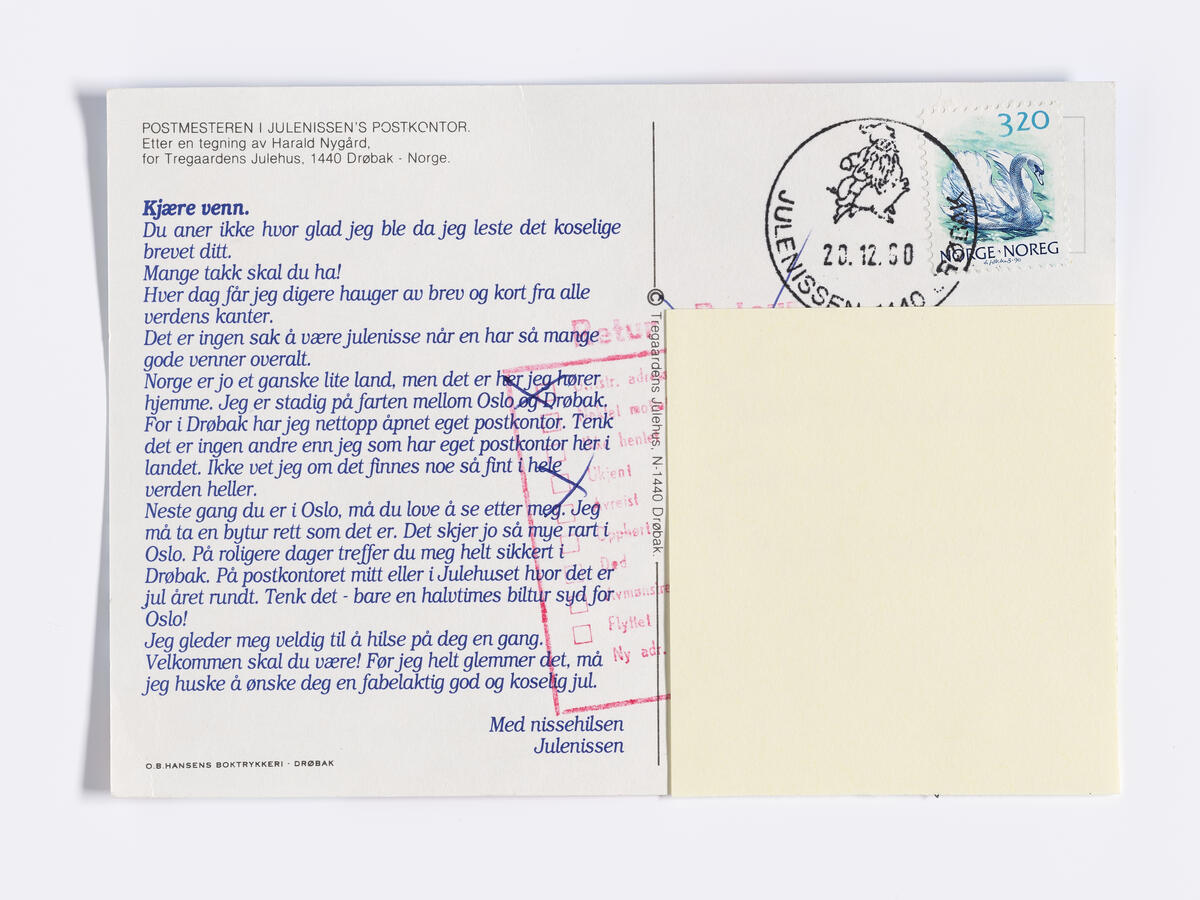 POSTMESTEREN I JULENISSEN'S POSTKONTOR.
Etter en tegning av Harald Nygård,
for Tregaardens Julehus, 1440 Drøbak - Norge.
Kjære venn.
Du aner ikke hvor glad jeg ble da jeg leste det koselige
brevet ditt.
Mange takk skal du ha!
Hver dag får jeg digere hauger av brev og kort fra alle
verdens kanter.
Det er ingen sak å være julenisse når en har så mange
gode venner overalt.
Norge er jo et ganske lite land, men det er her jeg hører
hjemme. Jeg er stadig på farten mellom Oslo og Drøbak.
For i Drøbak har jeg nettopp åpnet eget postkontor. Tenk
det er ingen andre enn jeg som har eget postkontor her i
landet. Ikke vet jeg om det finnes noe så fint i hele
verden heller.
Neste gang du er i Oslo, må du love å se etter meg. Jeg
må ta en bytur rett som det er. Det skjer jo så mye rart i
Oslo. På roligere dager treffer du meg helt sikkert i
Drøbak. På postkontoret mitt eller i Julehuset hvor det er
jul året rundt. Tenk det - bare en halvtimes biltur syd for
Oslo!
Jeg gleder meg veldig til å hilse på deg en gang.
Velkommen skal du være! Før jeg helt glemmer det, må
jeg huske å ønske deg en fabelaktig god og koselig jul.
Med nissehilsen
Julenissen
O.B.HANSENS BOKTRYKKERI - DRØBAK
© Tregaardens Julehus, N-1440 Drøbak.
Ukjent
Avreist
Opphørt
Død
Flyttet
Ny adr.
JULENISSEN 1440 DRØBAK
20.12.
320
NORGE·NOREG